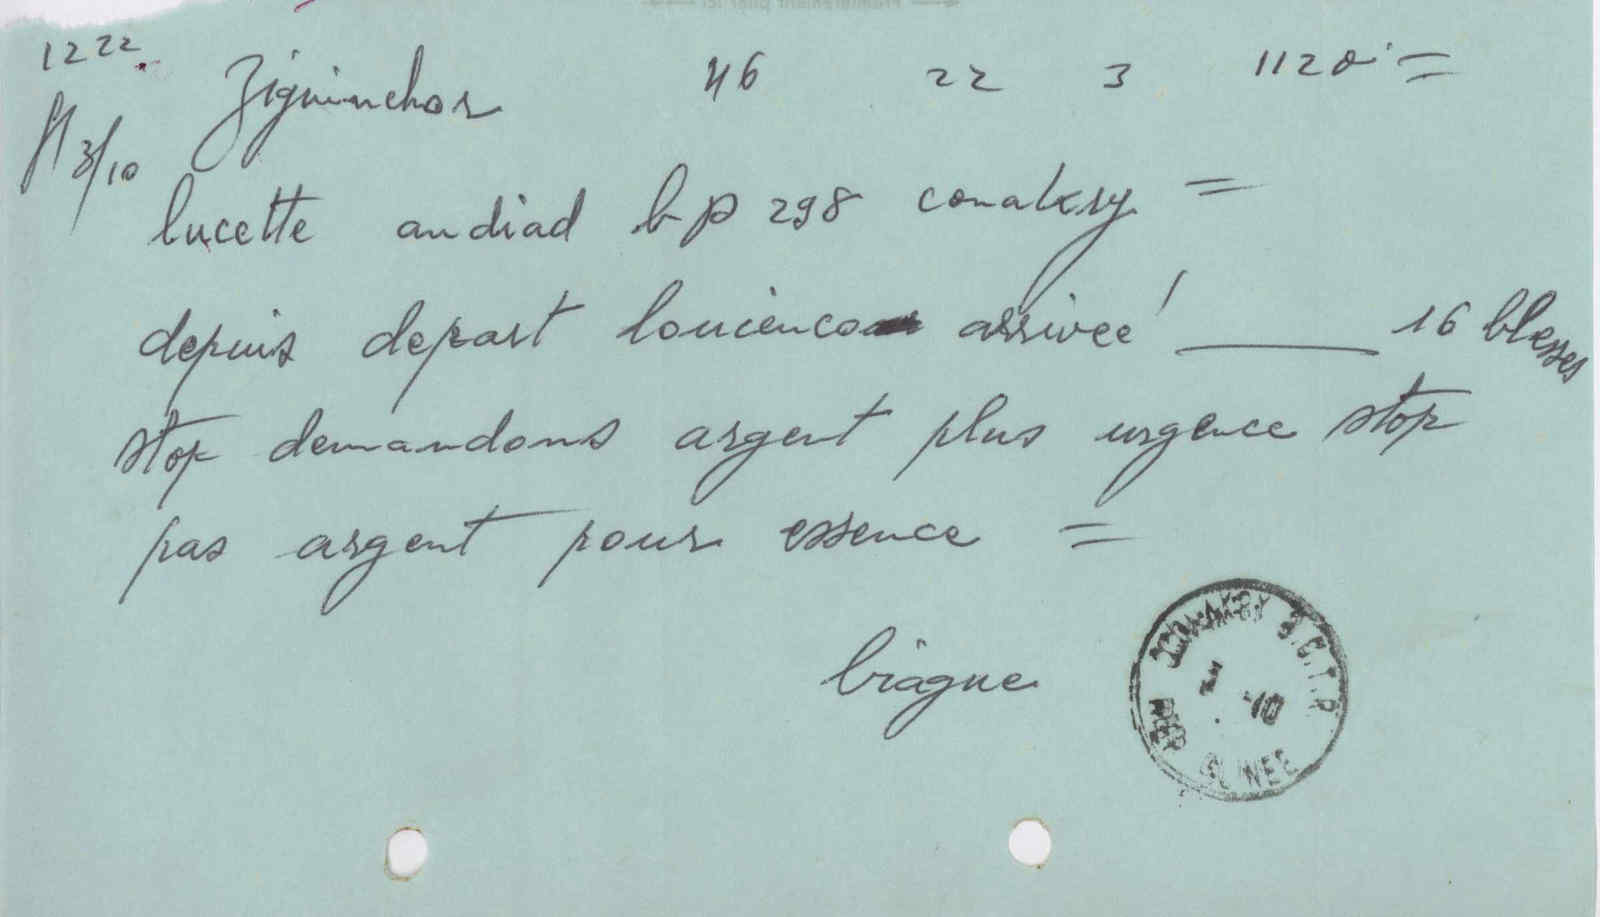 1222
Ziguinchor 46 22 3 1120 =
3/10
lucette andiad bp 298 conakry =
depuis depart arrivee ____ 16 blesses
stop demandons argent plus urgence stop
pas argent pour essence =
biague
CONAKRY R.C.T.P.
3 -10
REP GUINEE